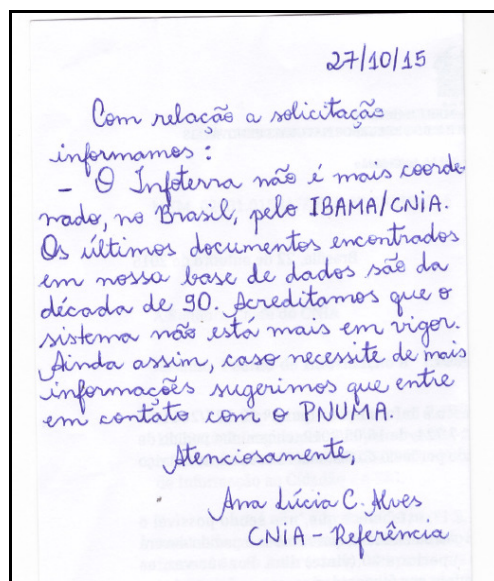 27/10/15
Com relação a solicitação
informamos:
- O Infoterra não é mais coorde
nado, no Brasil, pelo IBAMA/CNiA.
Os últimos documentos encontrados
em nossa base de dados são da
década de 90. Acreditamos que o
sistema não está mais em vigor.
Ainda assim, caso necessite de mais
informações sugerimos que entre
em contato com o PNUMA.
Atenciosamente,
Ana Lúcia C. Alves
CNiA - Referência